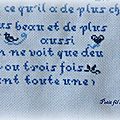 ce qu'il a de plus ch
us beau et de plus
aussi
n ne voit que deu
ou trois fois
ant toute une